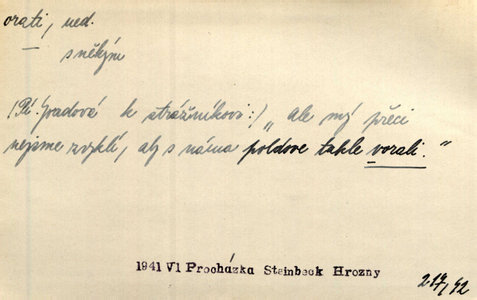 orati, ned.
s někým
(Pí. Joadová k strážníkovi:) „ale my přeci
nejsme zvyklí, aby s náma poldove takle vorali.“
1941 V1 Procházka Steinbeck Hrozny
217/42